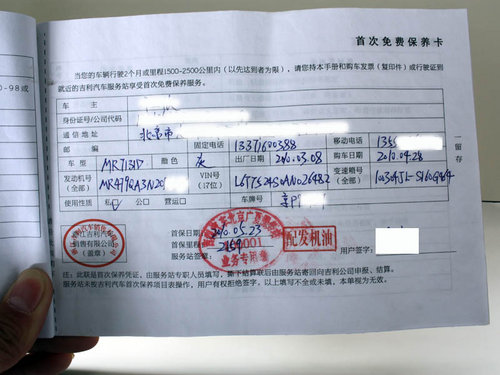 首次免费保养卡
当您的车辆行驶2个月或里程1500-2500公里内（以先达到者为限），请您持本手册和购车发票（复印件）或行驶证到
就近的吉利汽车服务站享受首次免费保养服务。
0-98或
车 主
身份证号/公司代码
通信地址 北京市
邮 编 固定电话 移动电话 135
车 型 MR7131D 颜色 灰 出厂日期 2010.03.08 购车日期 2010.04.28
发动机号（全部） MR479QA3N20 VIN号（17位） 变速箱号（全部）
使用性质 私 公□ 营运□ 车牌号 京P
一留存
浙江吉利汽车销售有限公司（盖章）
首保日期 2010.05.23
首保里程
服务站签章
业务专用章
配发机油
用户签字：
注：此联是首次保养凭证，由服务站专职人员填写，撕下结算联后由服务站寄回向吉利公司申报、结算。
服务站未按吉利汽车首次保养项目表操作，用户有权拒绝签字，以上填写不全或未填，本单视为无效。